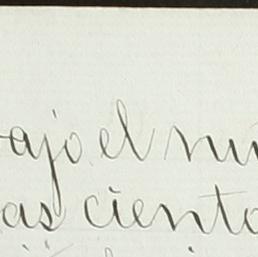 ajo el nú
as ciento